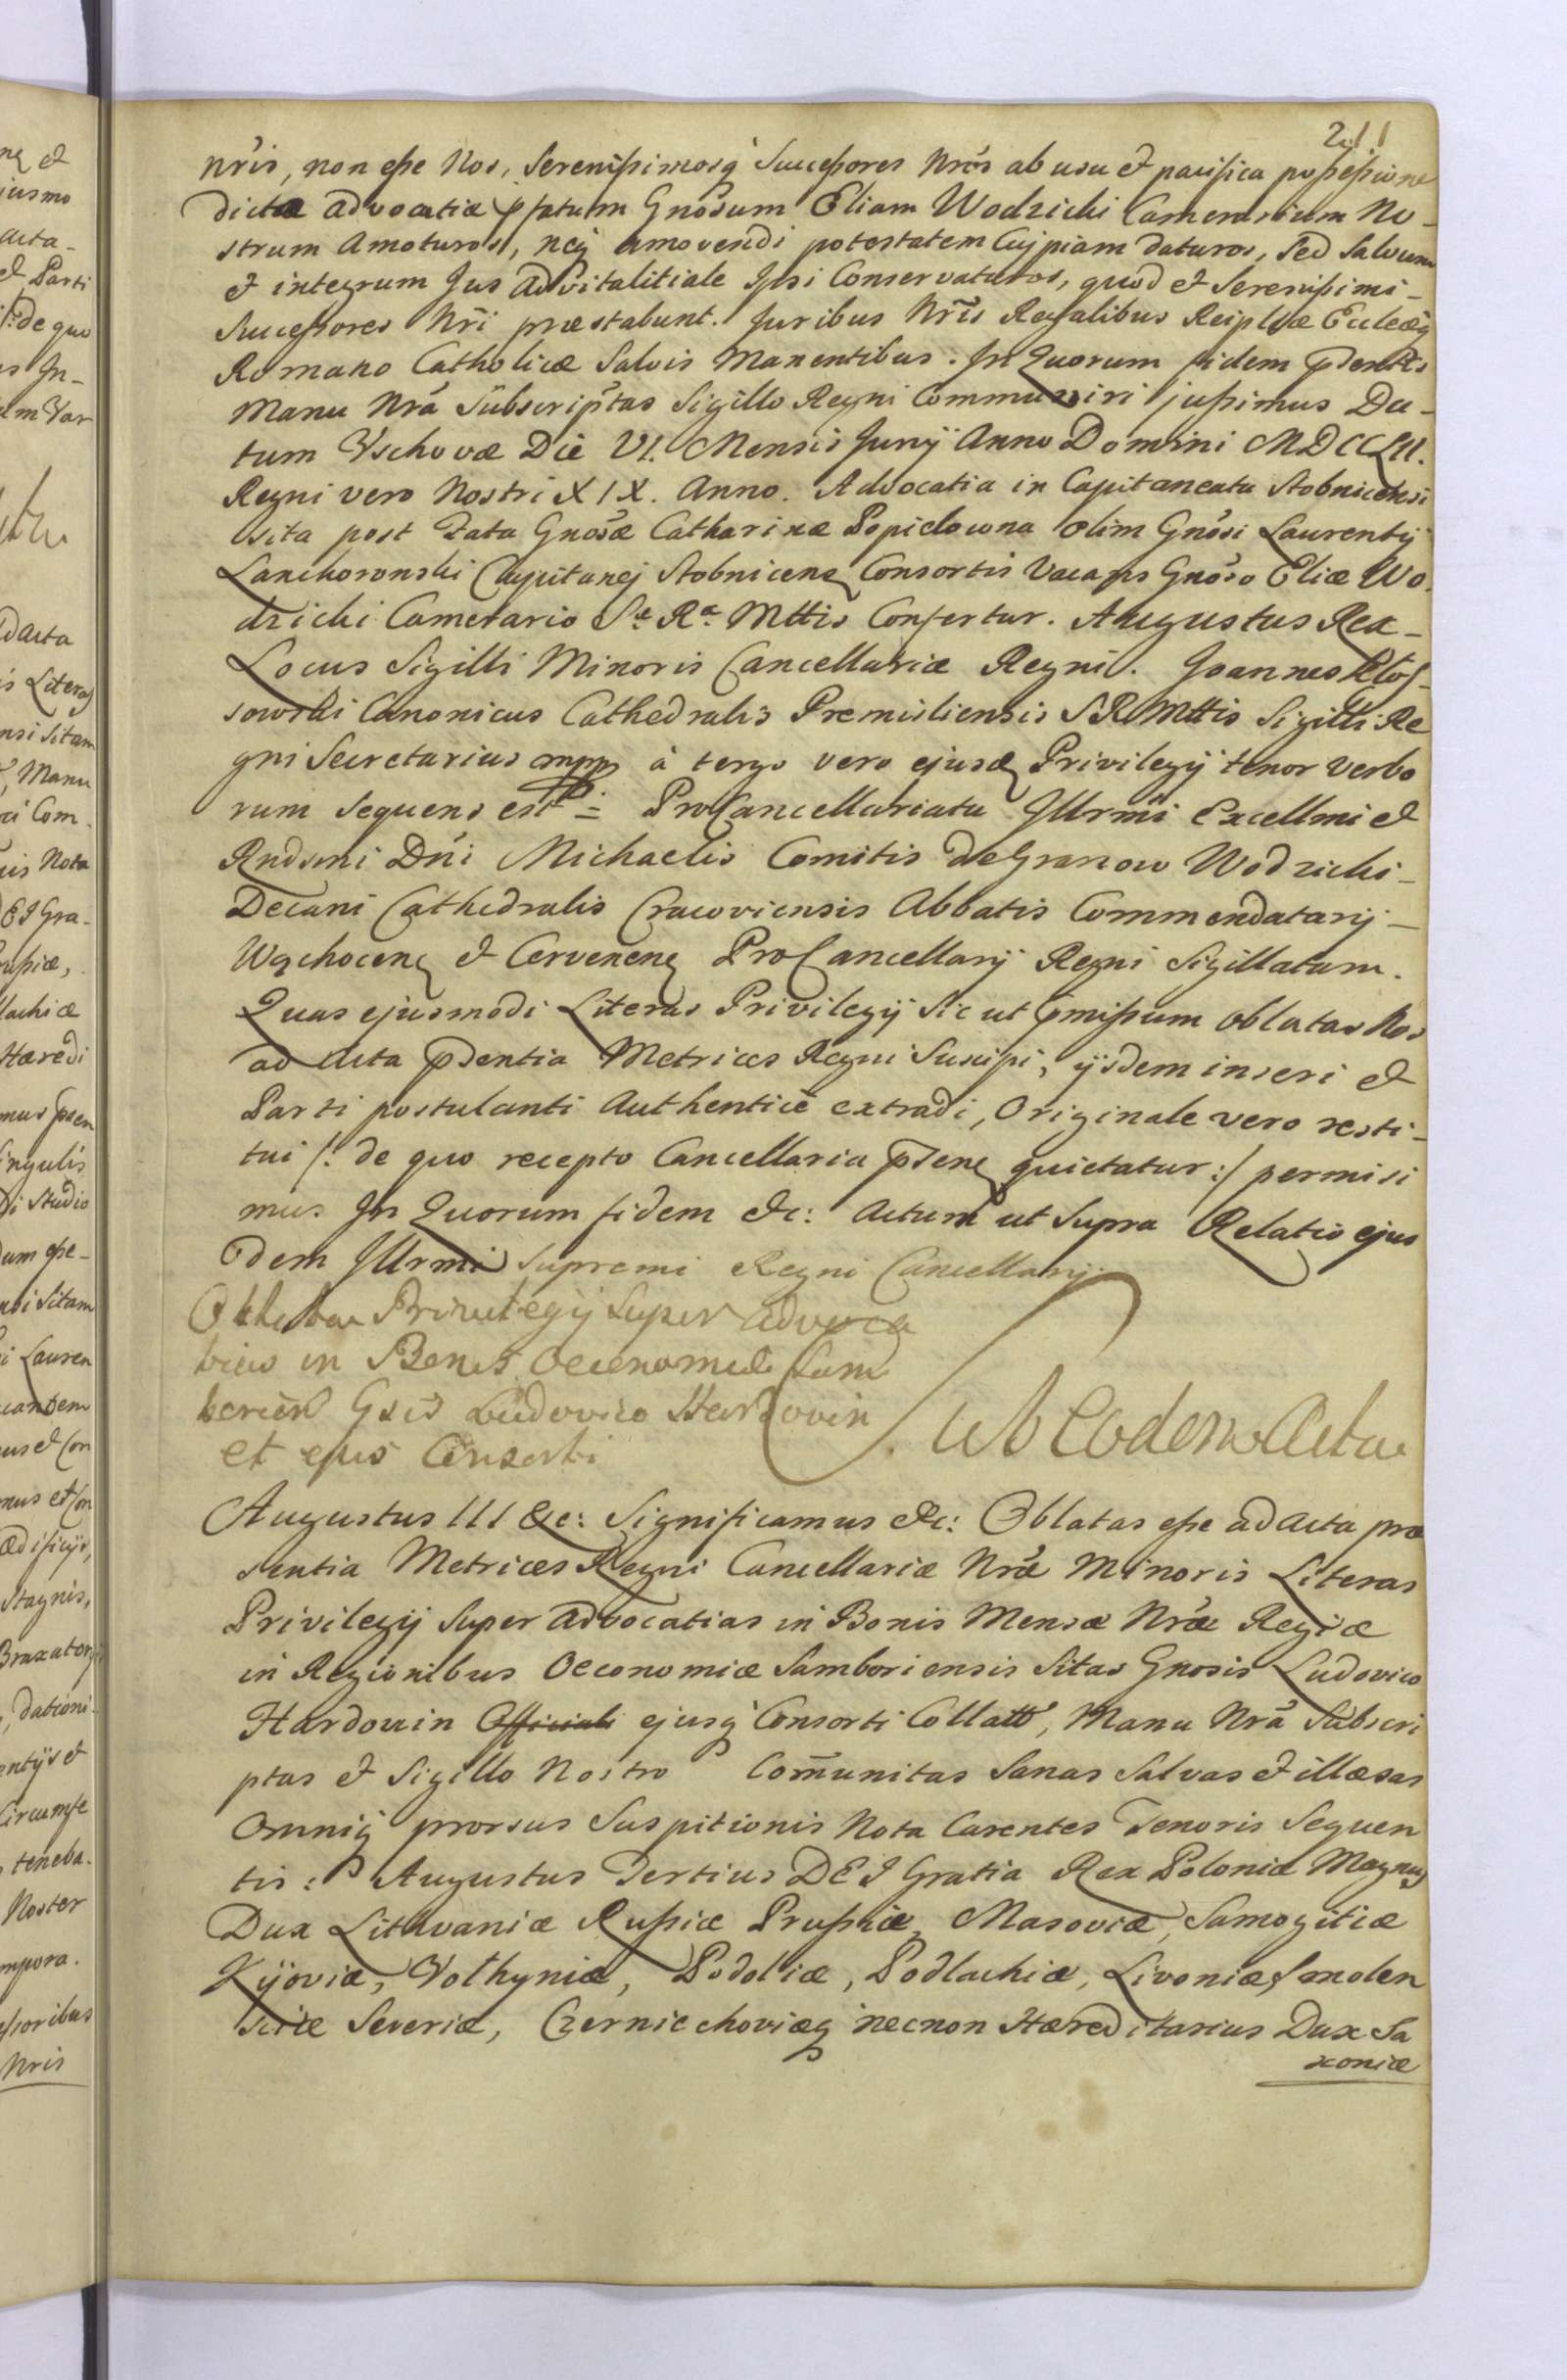 211
nr̃is, non esse Nos, Serenissimosq̃ Successores Nrõs ab usu et pacifica possessione
dictæ advocatiæ pfatum Gnõsum Eliam Wodzicki Camerarium No-
strum Amoturos, neq̃ amovendi potestatem Cujpiam daturos, Sed Salvum
et integrum Jus advitalitiale Ipsi Conservaturos, quod et Serenissimi-
Successores Nr̃i præstabunt. Juribus Nr̃is Regalibus Reiplcæ Ecclæq̃
Romano Catholicæ Salvis Manentibus. In Quorum fidem pdentes
Manu Nr̃a Subscriptas Sigillo Regni Communiri jussimus Da-
tum Vschovæ Die VI. Mensis Junij Anno Domini MDCCLII.
Regni vero Nostri XIX. Anno. Advocatia in Capitaneatu Stobnicensi
sita post Fata Gnõsæ Catharinæ Popielowna olim Gnõsi Laurentij
Lanckoronski Capitanej Stobnicens Consortis Vacans Gnõso Eliæ Wo
dzicki Camerario Sæ Ræ Mttis Confertur. Augustus Rex-
Locus Sigilli Minoris Cancellariæ Regni. Joannes Klos-
sowski Canonicus Cathedralis Premisliensis SRMttis Sigilli Re
gni Secretarius mpp à tergo vero ejusd Privilegij tenor verbo
rum Sequens est = ProCancellariatu Illrmi Excellmi et
Rndsmi Dñi Michaelis Comitis de Granow Wodzicki-
Decani Cathedralis Cracoviensis Abbatis Commendatarij-
Wąchocens et Cervenens ProCancellarij Regni Sigillatum.
Quas ejusmodi Literas Privilegij Sic ut pmissum oblatas Nos
ad Acta pdentia Metrices Regni Suscipi, ijsdem inseri et
Parti postulanti Authentice extradi, Originale vero resti-
tui /: de quo recepto Cancellaria pdens quietatur :/ permisi
mus In Quorum fidem etc: Actum ut Supra Relatio ejus
dem Illrmi Supremi Regni Cancellarij
Oblata Privilegij Super advoca
tias in Bonis Oeconomiæ Sam
boriens Gsis Ludovico Hardouin
et ejus Consorti
Eodem Actu
Augustus III &c: Significamus etc: Oblatas esse ad Acta præ
sentia Metrices Regni Cancellariæ Nr̃æ Minoris Literas
Privilegij Super advocatias in Bonis Mensæ Nr̃æ Regiæ
in Regionibus Oeconomiæ Samboriensis Sitas Gnosis Ludovico
Hardouin Officiali ejusq̃ Consorti Collatẽ, Manu Nr̃a Subscri
ptas et Sigillo Nostro Com̃unitas Sanas Salvas et illæsas
Omniq̃ prorsus Suspitionis Nota Carentes Tenoris Sequen
tis: Augustus Tertius DEI Gratia Rex Poloniæ Magnus
Dux Lithvaniæ Russiæ Prussiæ, Masoviæ, Samogitiæ
Kijoviæ, Volhyniæ, Podoliæ, Podlachiæ, Livoniæ Smolen
sciæ Severiæ, Czerniechoviæq̃ necnon Hæreditarius Dux Sa
xoniæ